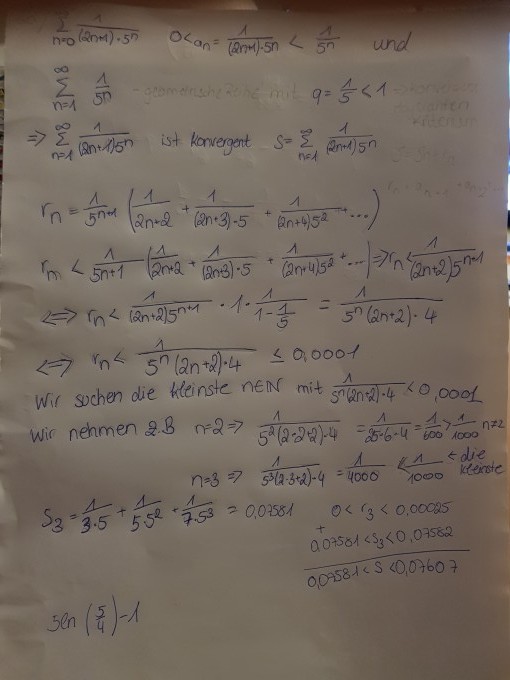 ∑ n=0 1/((2n+1)·5^n) 0<a_n = 1/((2n+1)·5^n) < 1/5^n und
∞∑n=1 1/5^n - geometrische Reihe mit q = 1/5 < 1
⇒ ∞∑n=1 1/((2n+1)5^n) ist konvergent S = ∞∑n=1 1/((2n+1)5^n)
r_n = 1/5^(n+1) (1/(2n+2) + 1/((2n+3)·5) + 1/((2n+4)5^2) + ...)
r_n < 1/5^(n+1) (1/(2n+2) + 1/((2n+3)·5) + 1/((2n+4)5^2) + ...) ⇒ r_n < 1/((2n+2)5^(n+1))
⇔ r_n < 1/((2n+2)5^(n+1)) · 1 · 1/(1-1/5) = 1/(5^n(2n+2)·4)
⇔ r_n < 1/(5^n(2n+2)·4) ≤ 0,0001
Wir suchen die kleinste n∈IN mit 1/(5^n(2n+2)·4) < 0,0001
Wir nehmen z.B n=2 ⇒ 1/(5^2(2·2+2)·4) = 1/(25·6·4) = 1/600 > 1/1000 n≠2
n=3 ⇒ 1/(5^3(2·3+2)·4) = 1/4000 < 1/1000 ← die kleinste
S_3 = 1/(3·5) + 1/(5·5^2) + 1/(7·5^3) = 0,07581 0 < r_3 < 0,00025
+
0,07581 < S_3 < 0,07582
0,07581 < S < 0,07607
sen (5/4) - 1